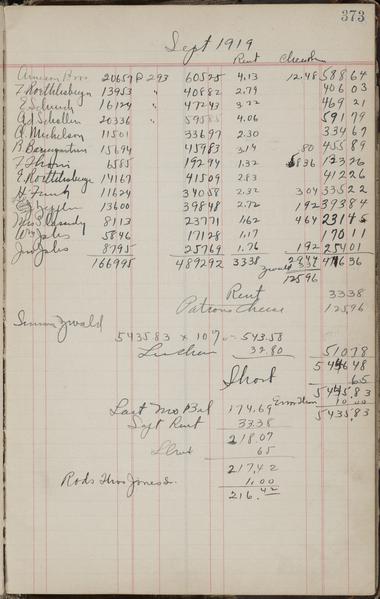 373
Sept 1919
Rent Cheese
Arneson Bros 20659 @ 293 60525 4.13 12.48 58864
F Rorthlisberger 13953 " 40882 2.79 40603
E Schindy 16124 " 47243 3.22 46921
G J Scholler 20336 " 59585 4.06 59179
A Mickelson 11501 33697 2.30 33467
B Baumgartner 15694 45983 3.14 .80 45589
F Thoni 6585 19294 1.32 5836 12326
E Rorthlisberger 14167 41509 2.83 41226
H Funk 11624 34058 2.32 304 33522
13600 39848 2.72 192 39384
Mrs P Cassidy 8113 23771 1.62 464 23145
Wm Jales 5846 17128 1.17 17011
Jno Jales 8795 25769 1.76 192 25401
166995 489292 33.38 2944 47636
Zwald 336
12596
Rent 3338
Patrons Cheese 12596
Simon Zwald
543583 x 10% 543.58
32.80 51078
Short 544648
65
544583
Last Mo Bal 174.69 Error 10.00
Sept Rent 33.38 543583
218.07
Short 65
217.42
Rods Thos Jones Sr. 1.00
216.42